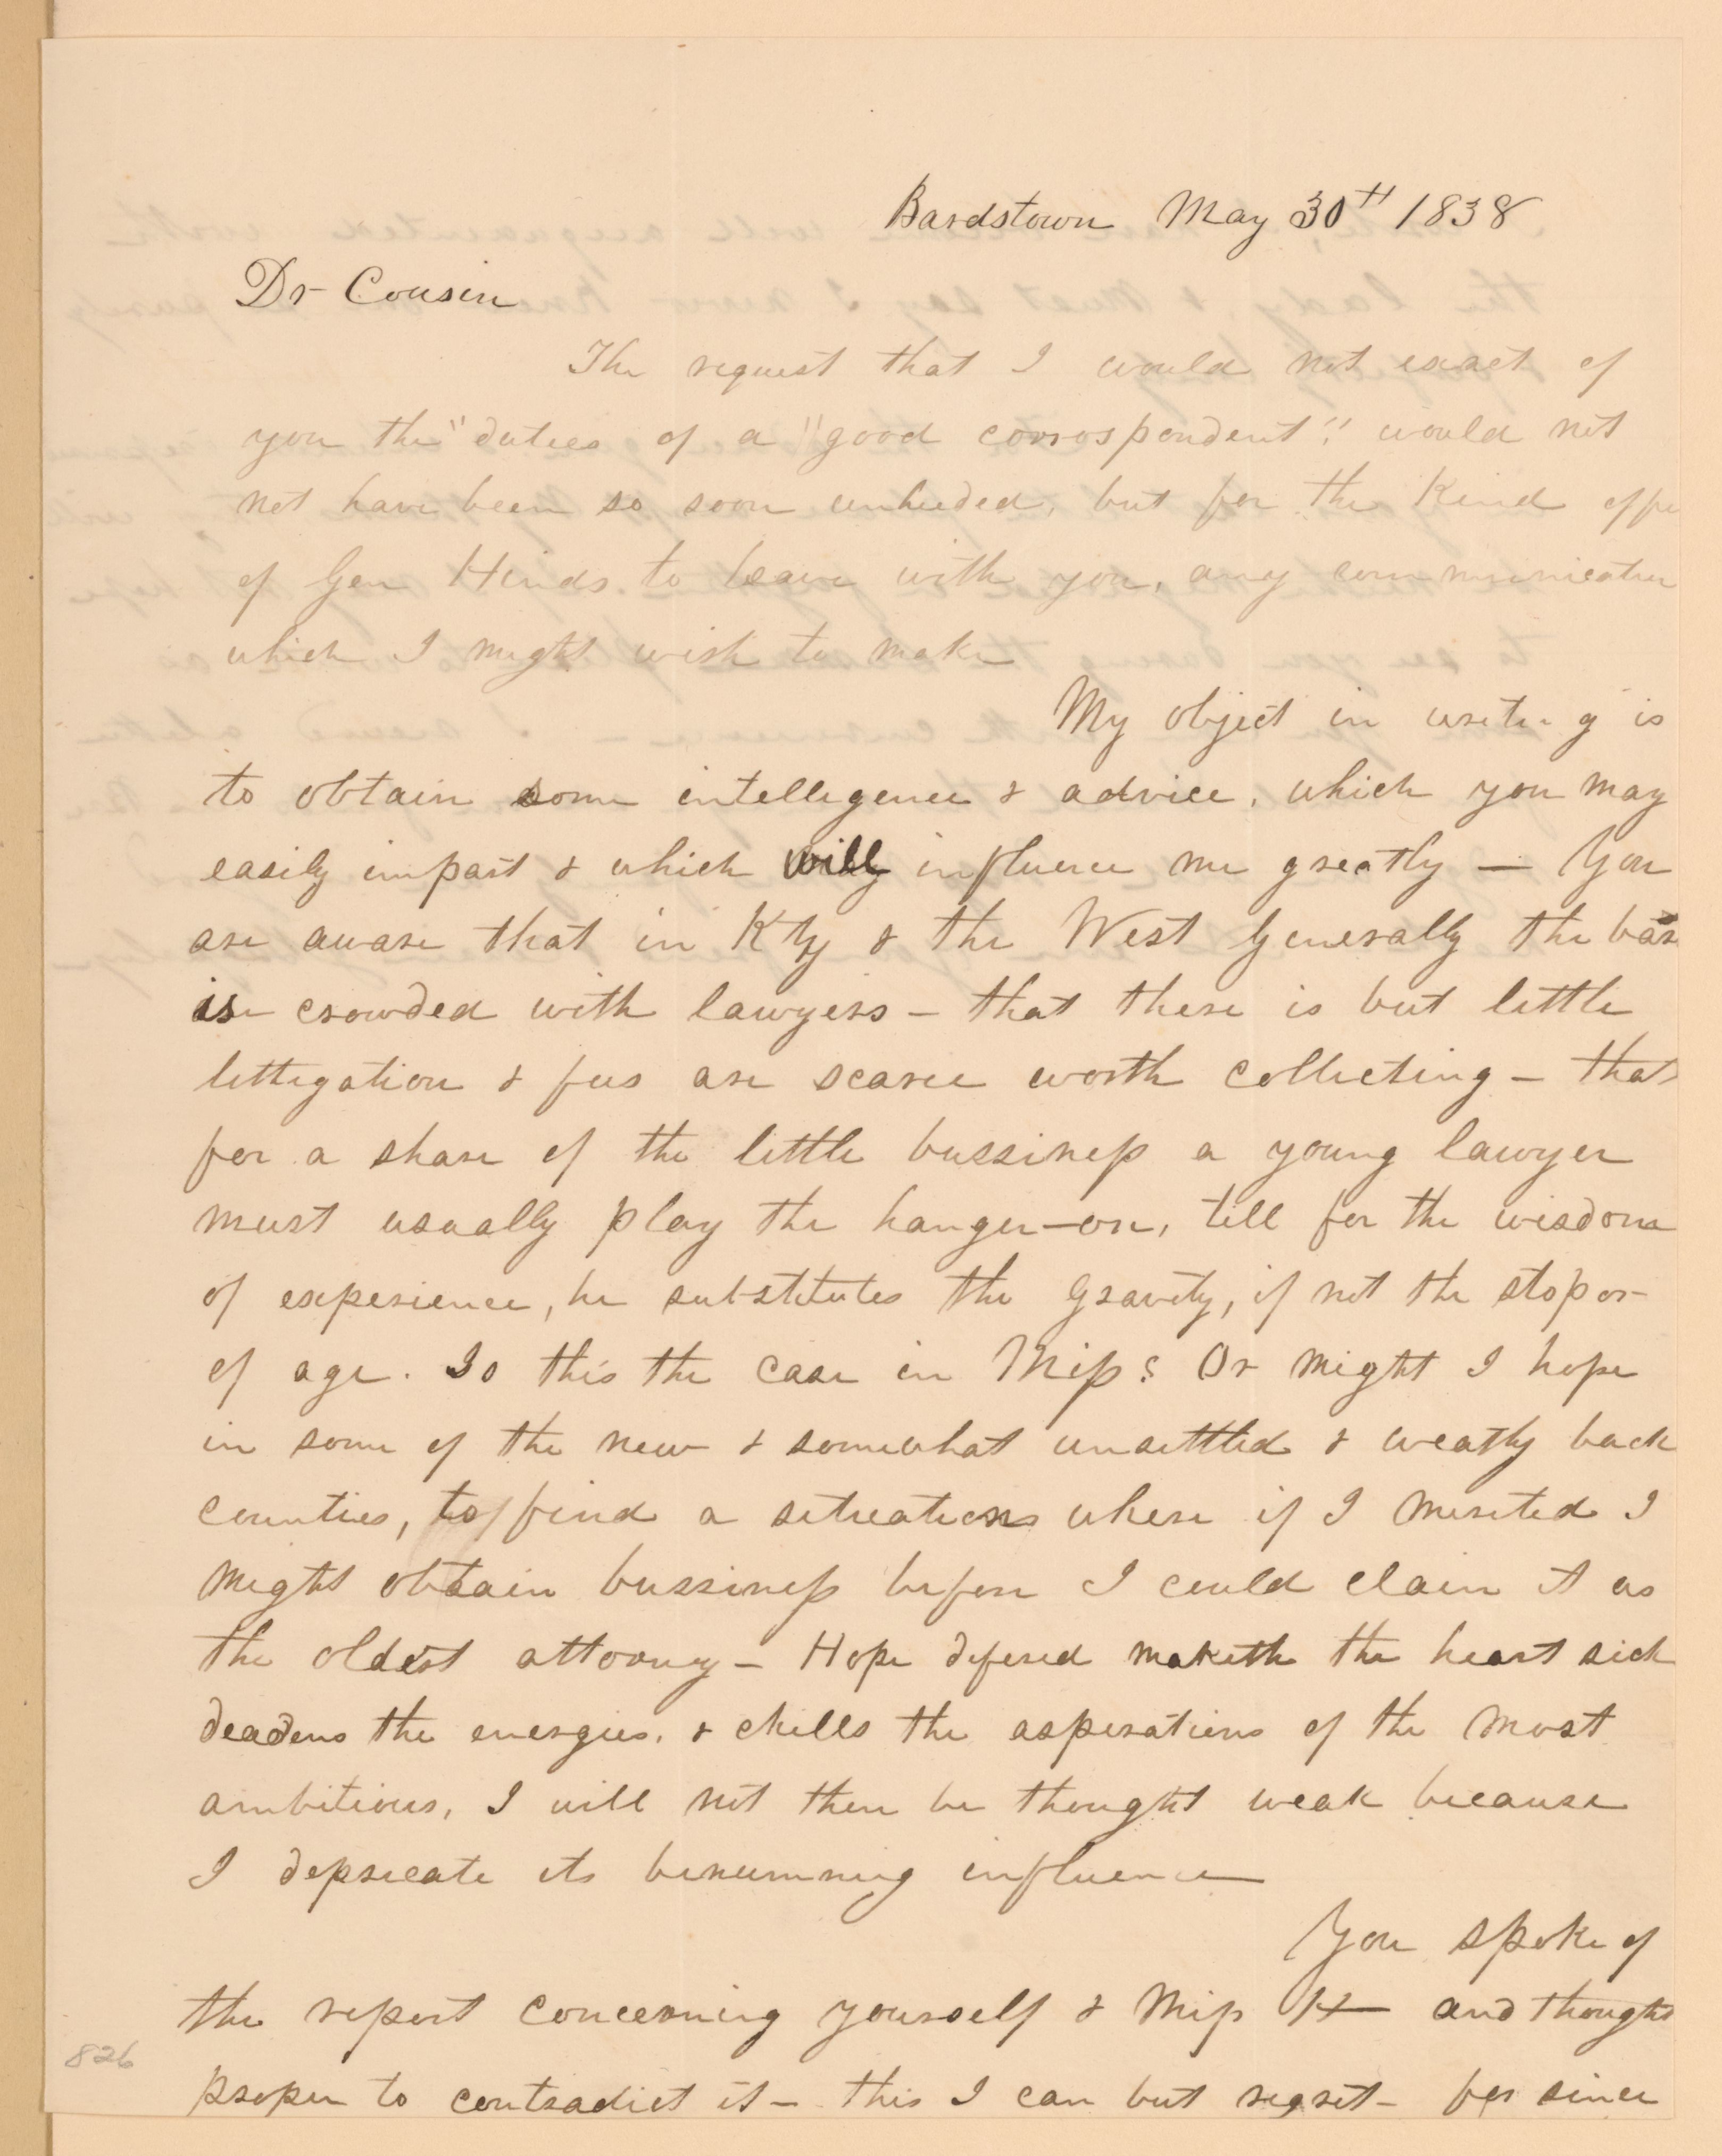 Bardstown May 30th 1838
Dr Cousin
The request that I would not exact of
you the "duties of a "good corrospondent" would not
not have been so soon unheeded, but for the Kind offe
of Gen Hinds to leave with you, any communication
which I might wish to make
My object in writing is
to obtain some intelligence & advice, which you may
easily impart & which will influence me greatly — You
are aware that in Kty & the West Generally the bar
is crowded with lawyers – that there is but little
littigation & fees are scarce worth collecting – that
for a share of the little bussiness a young lawyer
must usually play the hanger-on, till for the wisdom
of experience, he substitutes the gravity, if not the stopor
of age. Is this the case in Miss? Or might I hope
in some of the new & somewhat unsettled & weathy back
counties, to find a situation where if I merited I
might obtain bussiness before I could claim it as
the oldest attorney – Hope defered maketh the heart sick
deadens the energies, & chills the asperations of the most
ambitious, I will not then be thought weak because
I depricate its benumming influence
You spoke of
the report concerning yourself & Miss H— and thought
proper to contradict it – this I can but regret – for since
826